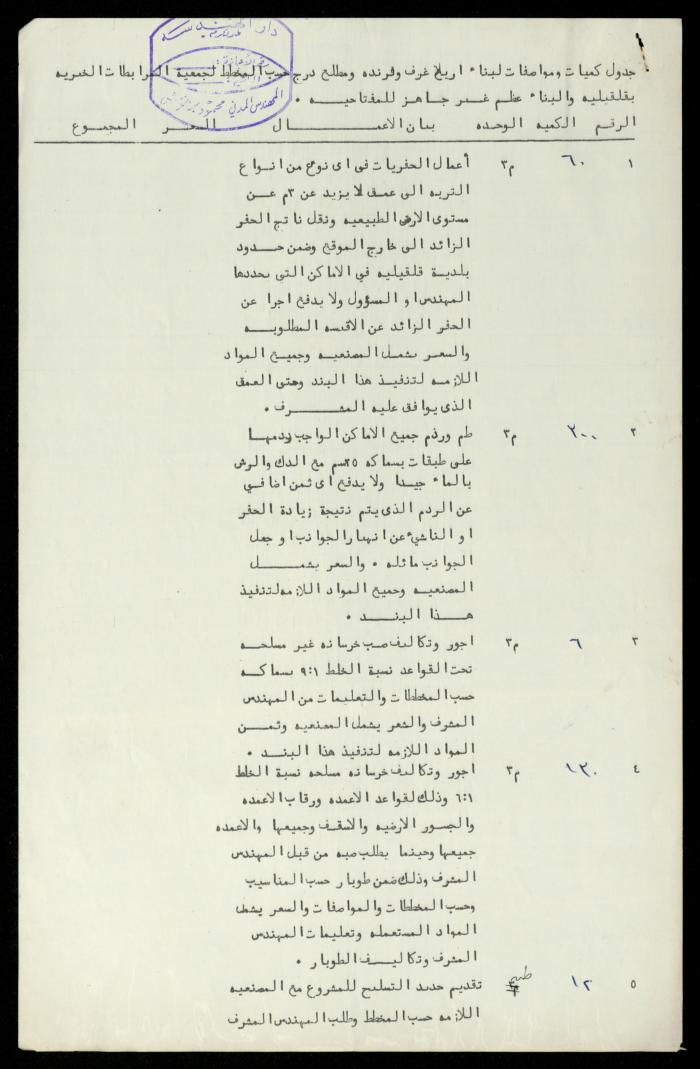 دار الهندسه
جدول كميات ومواصفات لبناء اربع غرف وفرنده ومطلع درج حسب المخطط لجمعية المرابطات الخيريه
بقلقيليه والبناء عظم غير جاهز للمفتاحيه .
المهندس المدني محمود
الرقم الكميه الوحده بيان الاعمال السعر المجموع
١ ٦٠ م٣ أعمال الحفريات في اى نوع من انواع
التربه الى عمق لا يزيد عن ٣م عن
مستوى الارض الطبيعيه ونقل ناتج الحفر
الزائد الى خارج الموقع وضمن حدود
بلدية قلقيليه في الاماكن التي يحددها
المهندس او المسؤول ولا يدفع اجرا عن
الحفر الزائد عن الاقيسه المطلوبه
والسعر يشمل المصنعيه وجميع المواد
اللازمه لتنفيذ هذا البند وحتى العمق
الذى يوافق عليه المشرف .
٢ ٢٠٠ م٣ طم وردم جميع الاماكن الواجب ردمها
على طبقات بسماكه ٢٥سم مع الدك والرش
بالماء جيدا ولا يدفع اى ثمن اضافي
عن الردم الذى يتم نتيجة زيادة الحفر
او الناشيء عن انهيار الجوانب او جعل
الجوانب مائله . والسعر يشمل
المصنعيه وجميع المواد اللازمه لتنفيذ
هذا البند .
٣ ٦ م٣ اجور وتكاليف صب خرسانه غير مسلحه
تحت القواعد نسبة الخلط ٩:١ بسماكه
حسب المخططات والتعليمات من المهندس
المشرف والشعر يشمل المصنعيه وثمن
المواد اللازمه لتنفيذ هذا البند .
٤ ١٣٠ م٣ اجور وتكاليف خرسانه مسلحه نسبة الخلط
٦:١ وذلك لقواعد الاعمده ورقاب الاعمده
والجسور الارضيه والاسقف وجميعها والاعمده
جميعها وحينما يطلب صبه من قبل المهندس
المشرف وذلك ضمن طوبار حسب المناسيب
وحسب المخططات والمواصفات والسعر يشمل
المواد المستعمله وتعليمات المهندس
المشرف وتكاليف الطوبار .
٥ ١٢ تقديم حديد التسليح للمشروع مع المصنعيه
اللازمه حسب المخطط وطلب المهندس المشرف